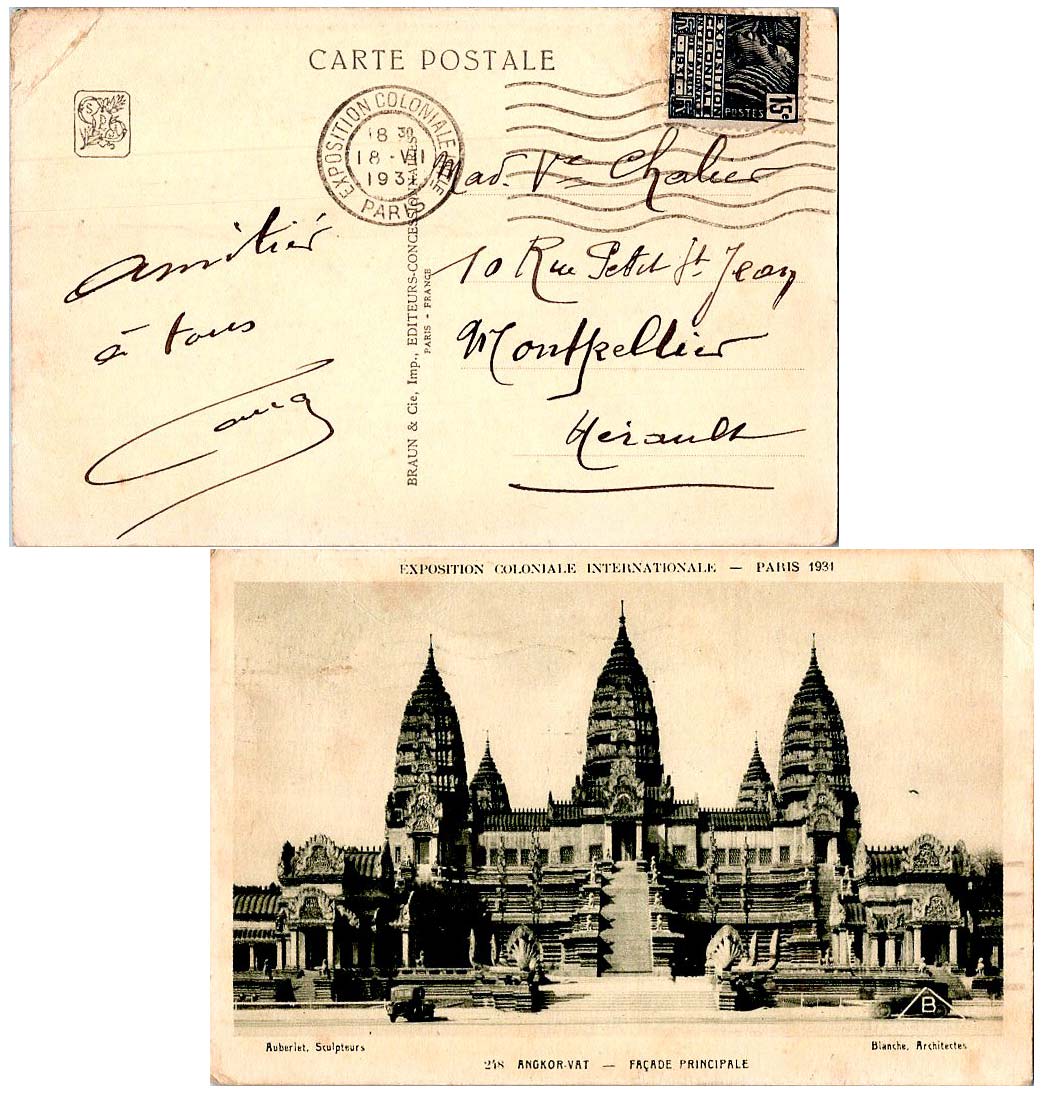 CARTE POSTALE
EXPOSITION COLONIALE INTLE
18 30
18 - VII
1931
PARIS
EXPOSITION
COLONIALE
INTERNATIONALE
DE PARIS
1931
POSTES
15c
Mad. Vve Chalier
10 Rue Petit St Jean
Montpellier
Hérault
Amitiés
à tous
BRAUN & Cie, Imp., EDITEURS-CONCESSIONNAIRES
PARIS - FRANCE
EXPOSITION COLONIALE INTERNATIONALE — PARIS 1931
B
Auberlet, Sculpteurs
Blanche, Architectes
248 ANGKOR-VAT — FAÇADE PRINCIPALE